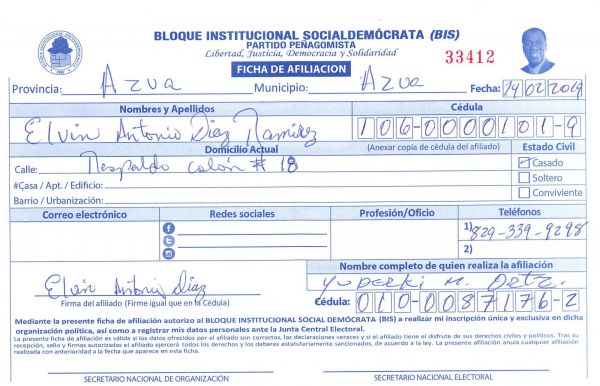 BLOQUE INSTITUCIONAL SOCIALDEMÓCRATA (BIS)
PARTIDO PEÑAGOMISTA
Libertad, Justicia, Democracia y Solidaridad
33412
FICHA DE AFILIACION
Provincia: Azua Municipio: Azua Fecha: 14/02/2019
Nombres y Apellidos Cédula
Elvin Antonio Diaz Ramirez 106-0000101-9
Domicilio Actual (Anexar copia de cédula del afiliado) Estado Civil
Calle: Respaldo colón # 18 Casado
#Casa / Apt. / Edificio: Soltero
Barrio / Urbanización: Conviviente
Correo electrónico Redes sociales Profesión/Oficio Teléfonos
1) 829-339-9298
2)
Nombre completo de quien realiza la afiliación
Elvin Antonio Diaz Yuderki M. Ortz.
Firma del afiliado (Firme igual que en la Cédula) Cédula: 010-0087176-2
Mediante la presente ficha de afiliación autorizo al BLOQUE INSTITUCIONAL SOCIAL DEMÓCRATA (BIS) a realizar mi inscripción única y exclusiva en dicha
organización política, así como a registrar mis datos personales ante la Junta Central Electoral.
La presente ficha de afiliación es válida si los datos ofrecidos por el afiliado son correctos, las declaraciones veraces y si el afiliado tiene el disfrute de sus derechos civiles y políticos. Tras su
recepción, sello y firmas autorizadas el afiliado ejercerá todos los derechos y los deberes estatutariamente sancionados, de acuerdo a la ley. La presente afiliación anula cualquier afiliación
realizada con anterioridad a la fecha que aparece en esta ficha.
SECRETARIO NACIONAL DE ORGANIZACIÓN SECRETARIO NACIONAL ELECTORAL